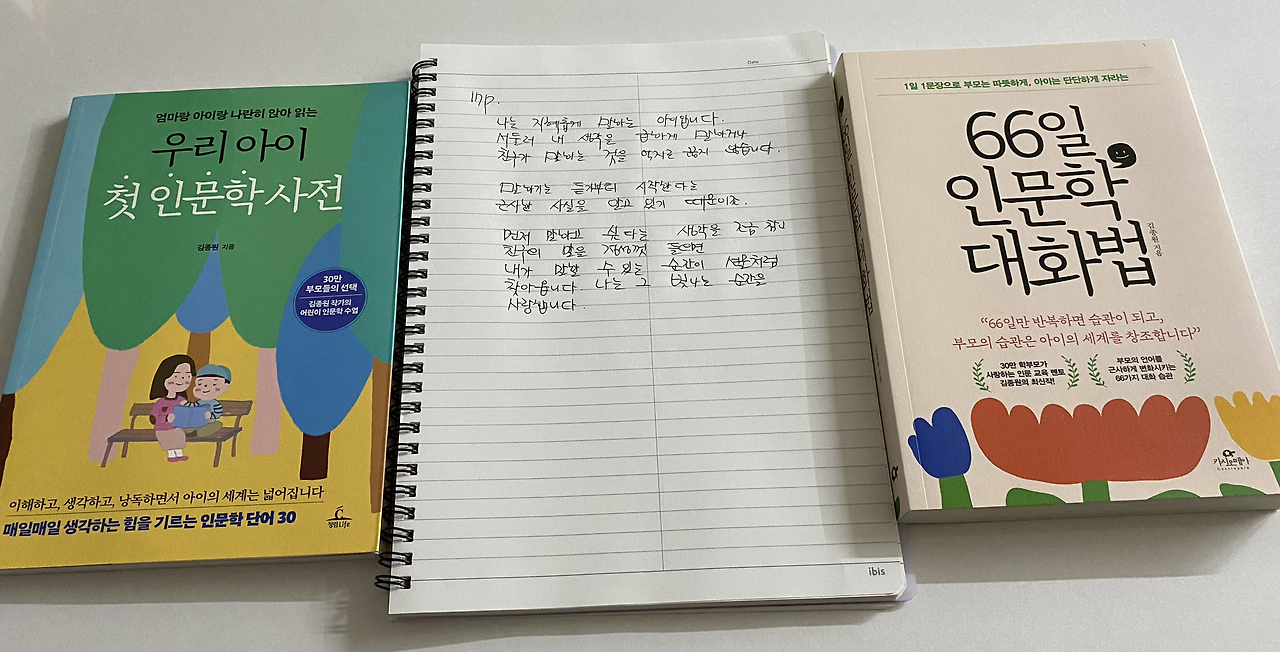 엄마랑 아이랑 나란히 앉아 읽는
우리 아이
첫 인문학 사전
김종원 지음
30만
부모들의 선택
김종원 작가의
어린이 인문학 수업
이해하고, 생각하고, 낭독하면서 아이의 세계는 넓어집니다
매일매일 생각하는 힘을 기르는 인문학 단어 30
청림Life
Date
117p.
나는 지혜롭게 말하는 아이입니다.
서둘러 내 생각을 급하게 말하거나
친구가 말하는 것을 억지로 끊지 않습니다.
말하기는 듣기부터 시작한다는
근사한 사실을 알고 있기 때문이죠.
먼저 말하고 싶다는 생각을 조금 참고
친구의 말을 정성껏 들으면
내가 말할 수 있는 순간이 선물처럼
찾아옵니다. 나는 그 빛나는 순간을
사랑합니다.
ibis
1일 1문장으로 부모는 따뜻하게, 아이는 단단하게 자라는
66일
인문학
대화법
김종원 지음
“66일만 반복하면 습관이 되고,
부모의 습관은 아이의 세계를 창조합니다”
30만 학부모가
사랑하는 인문 교육 멘토
김종원의 최신작!
부모의 언어를
근사하게 변화시키는
66가지 대화 습관
카시오페아
Cassiopeia